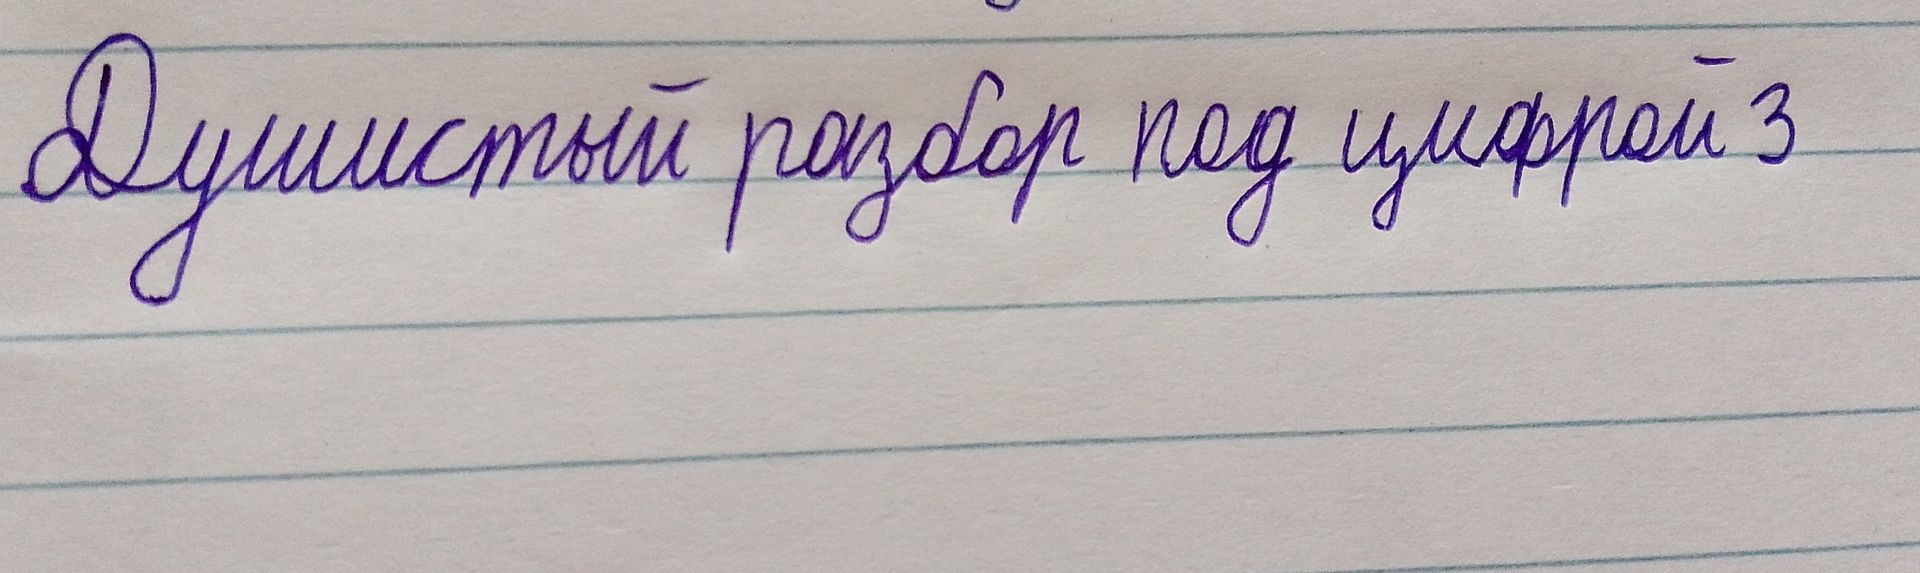 Душистый разбор под цифрой 3